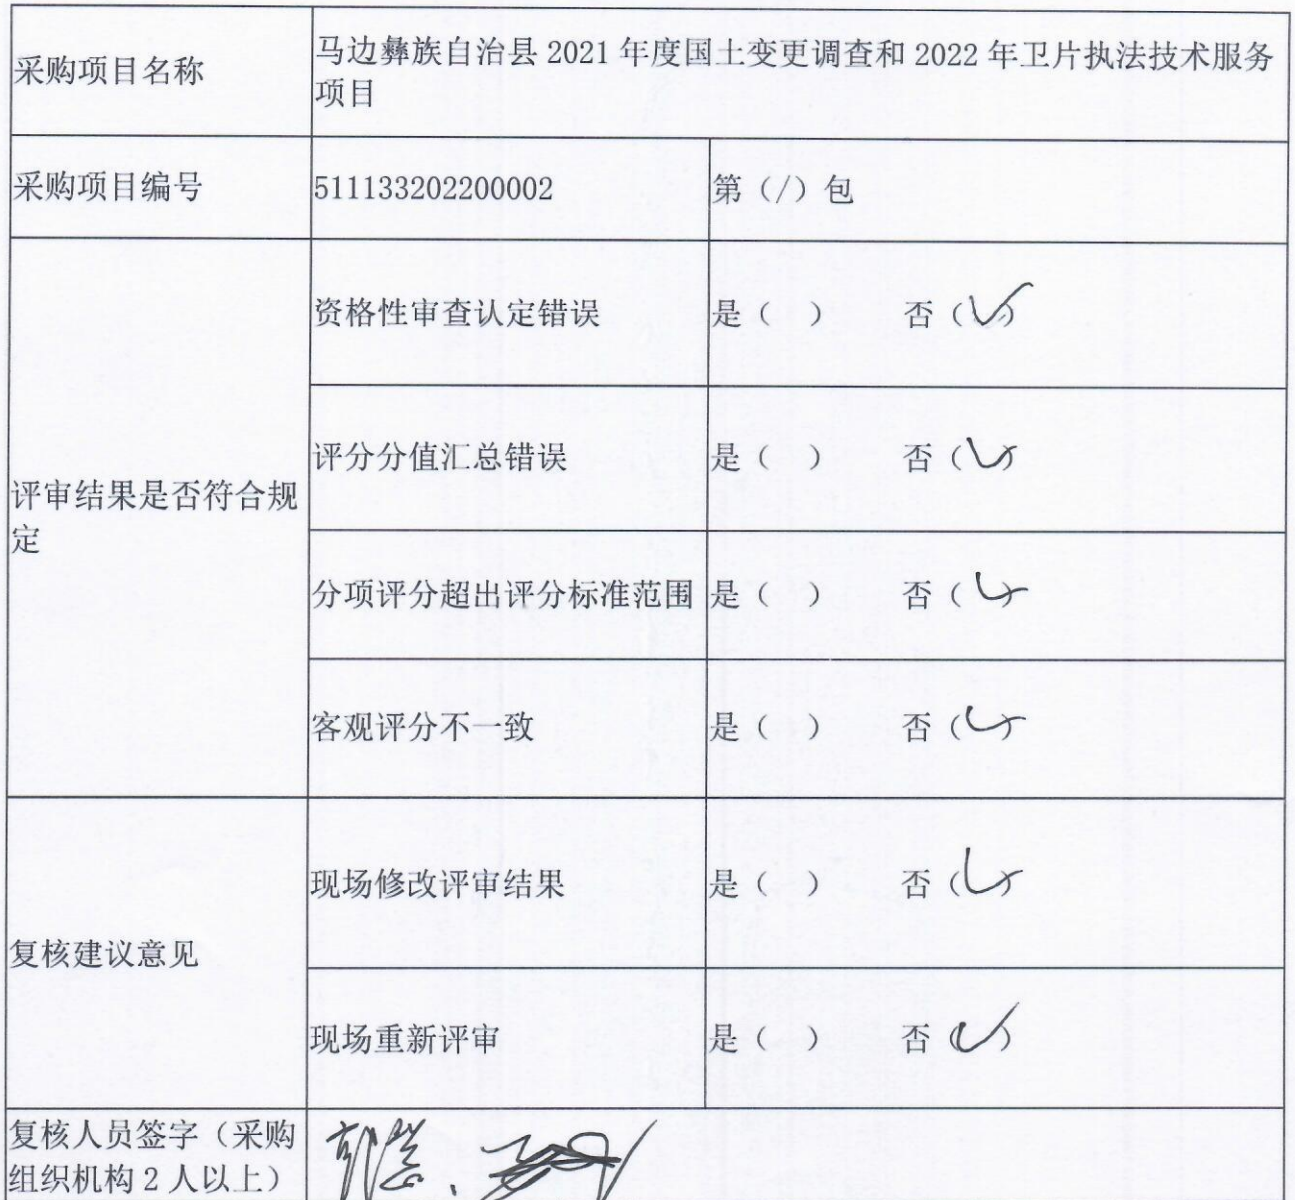 采购项目名称
马边彝族自治县 2021 年度国土变更调查和 2022 年卫片执法技术服务
项目
采购项目编号
511133202200002
第（/）包
评审结果是否符合规
定
资格性审查认定错误
是（ ） 否（✓）
评分分值汇总错误
是（ ） 否（✓）
分项评分超出评分标准范围
是（ ） 否（✓）
客观评分不一致
是（ ） 否（✓）
复核建议意见
现场修改评审结果
是（ ） 否（✓）
现场重新评审
是（ ） 否（✓）
复核人员签字（采购
组织机构 2 人以上）